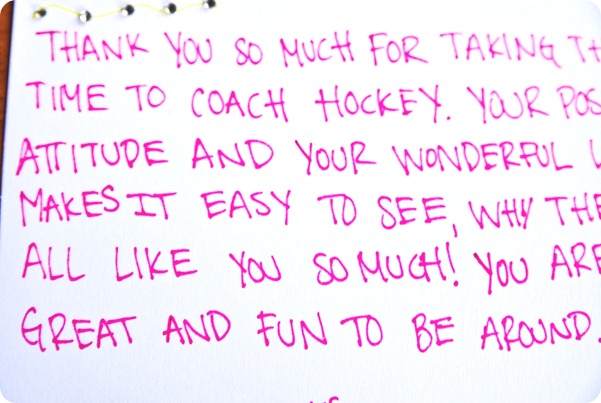 THANK YOU SO MUCH FOR TAKING TH
TIME TO COACH HOCKEY. YOUR POS
ATTITUDE AND YOUR WONDERFUL
MAKES IT EASY TO SEE, WHY THE
ALL LIKE YOU SO MUCH! YOU ARE
GREAT AND FUN TO BE AROUND.